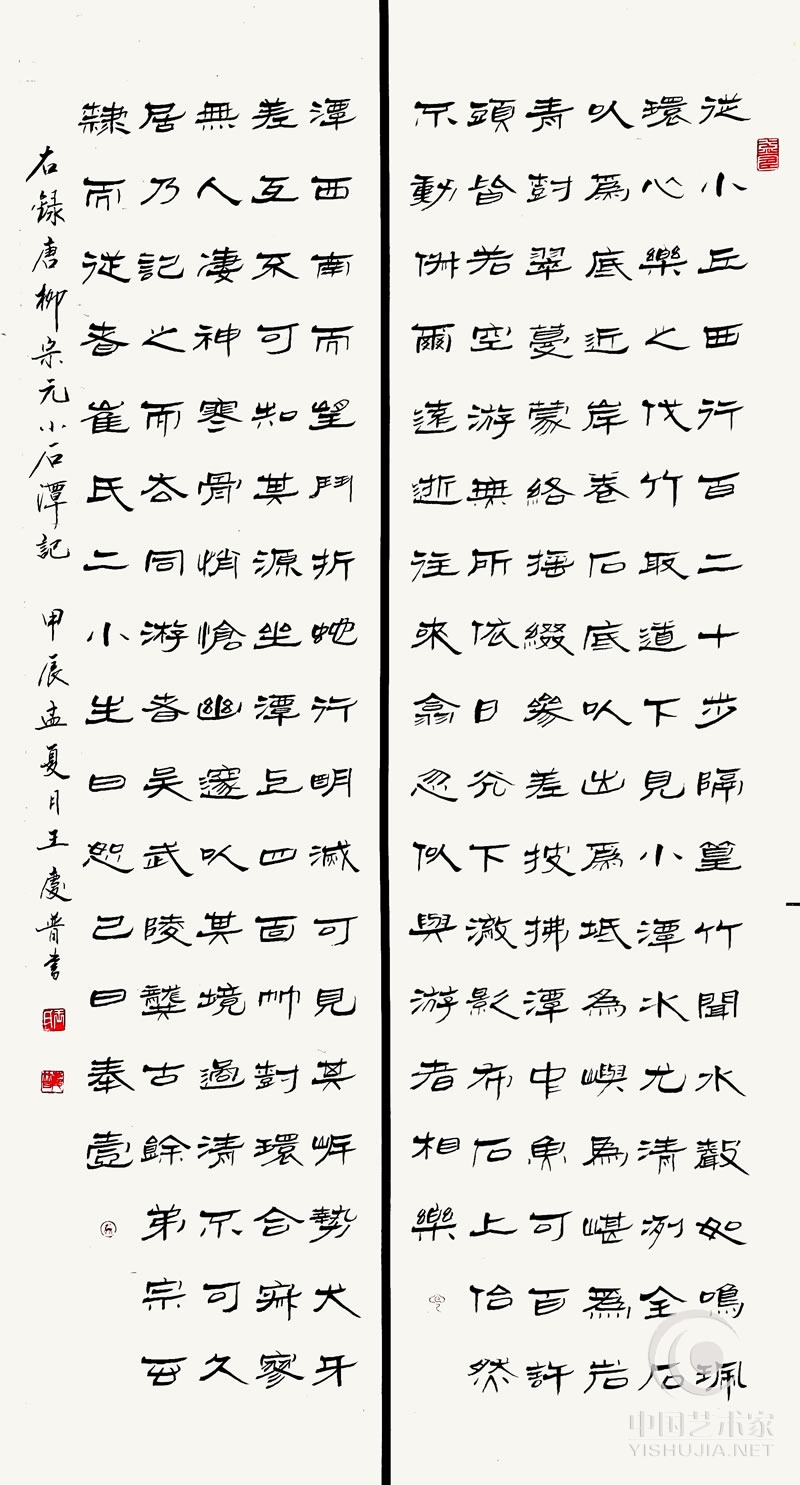 從小丘西行百二十步隔篁竹聞水聲如鳴珮
環心樂之伐竹取道下見小潭水尤清洌全石
以為底近岸卷石底以出為坻為嶼為嵁為岩
青尌翠蔓蒙絡搖綴參差披拂潭中魚可百許
頭皆若空游無所依日光下澈影布石上佁然
不動俶爾遠逝往來翕忽似與游者相樂
潭西南而望鬥折蛇行明滅可見其岸勢犬牙
差互不可知其源坐潭上四面竹尌環合寂寥
無人淒神寒骨悄愴幽邃以其境過清不可久
居乃記之而去同游者吳武陵龔古餘弟宗玄
隸而從者崔氏二小生曰恕己曰奉壹
右錄唐柳宗元小石潭記 甲辰孟夏月王慶普書
中国艺术家
YISHUJIA.NET